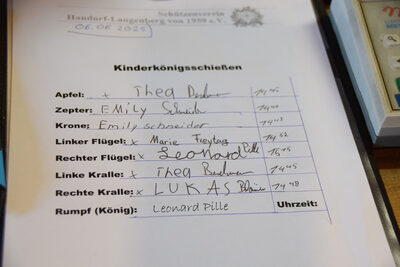 Schützenverein
Handorf-Langenberg von 1959 e.V.
06.06.2025
Kinderkönigsschießen
Apfel: x Thea 14 45
Zepter: EMILY Schneider 1440
Krone: Emily schneider 1443
Linker Flügel: x Marie Freytag 14 52
Rechter Flügel: x Leonard Pille 15 45
Linke Kralle: x Thea 14 45
Rechte Kralle: x LUKAS 14 48
Rumpf (König): Leonard Pille Uhrzeit: